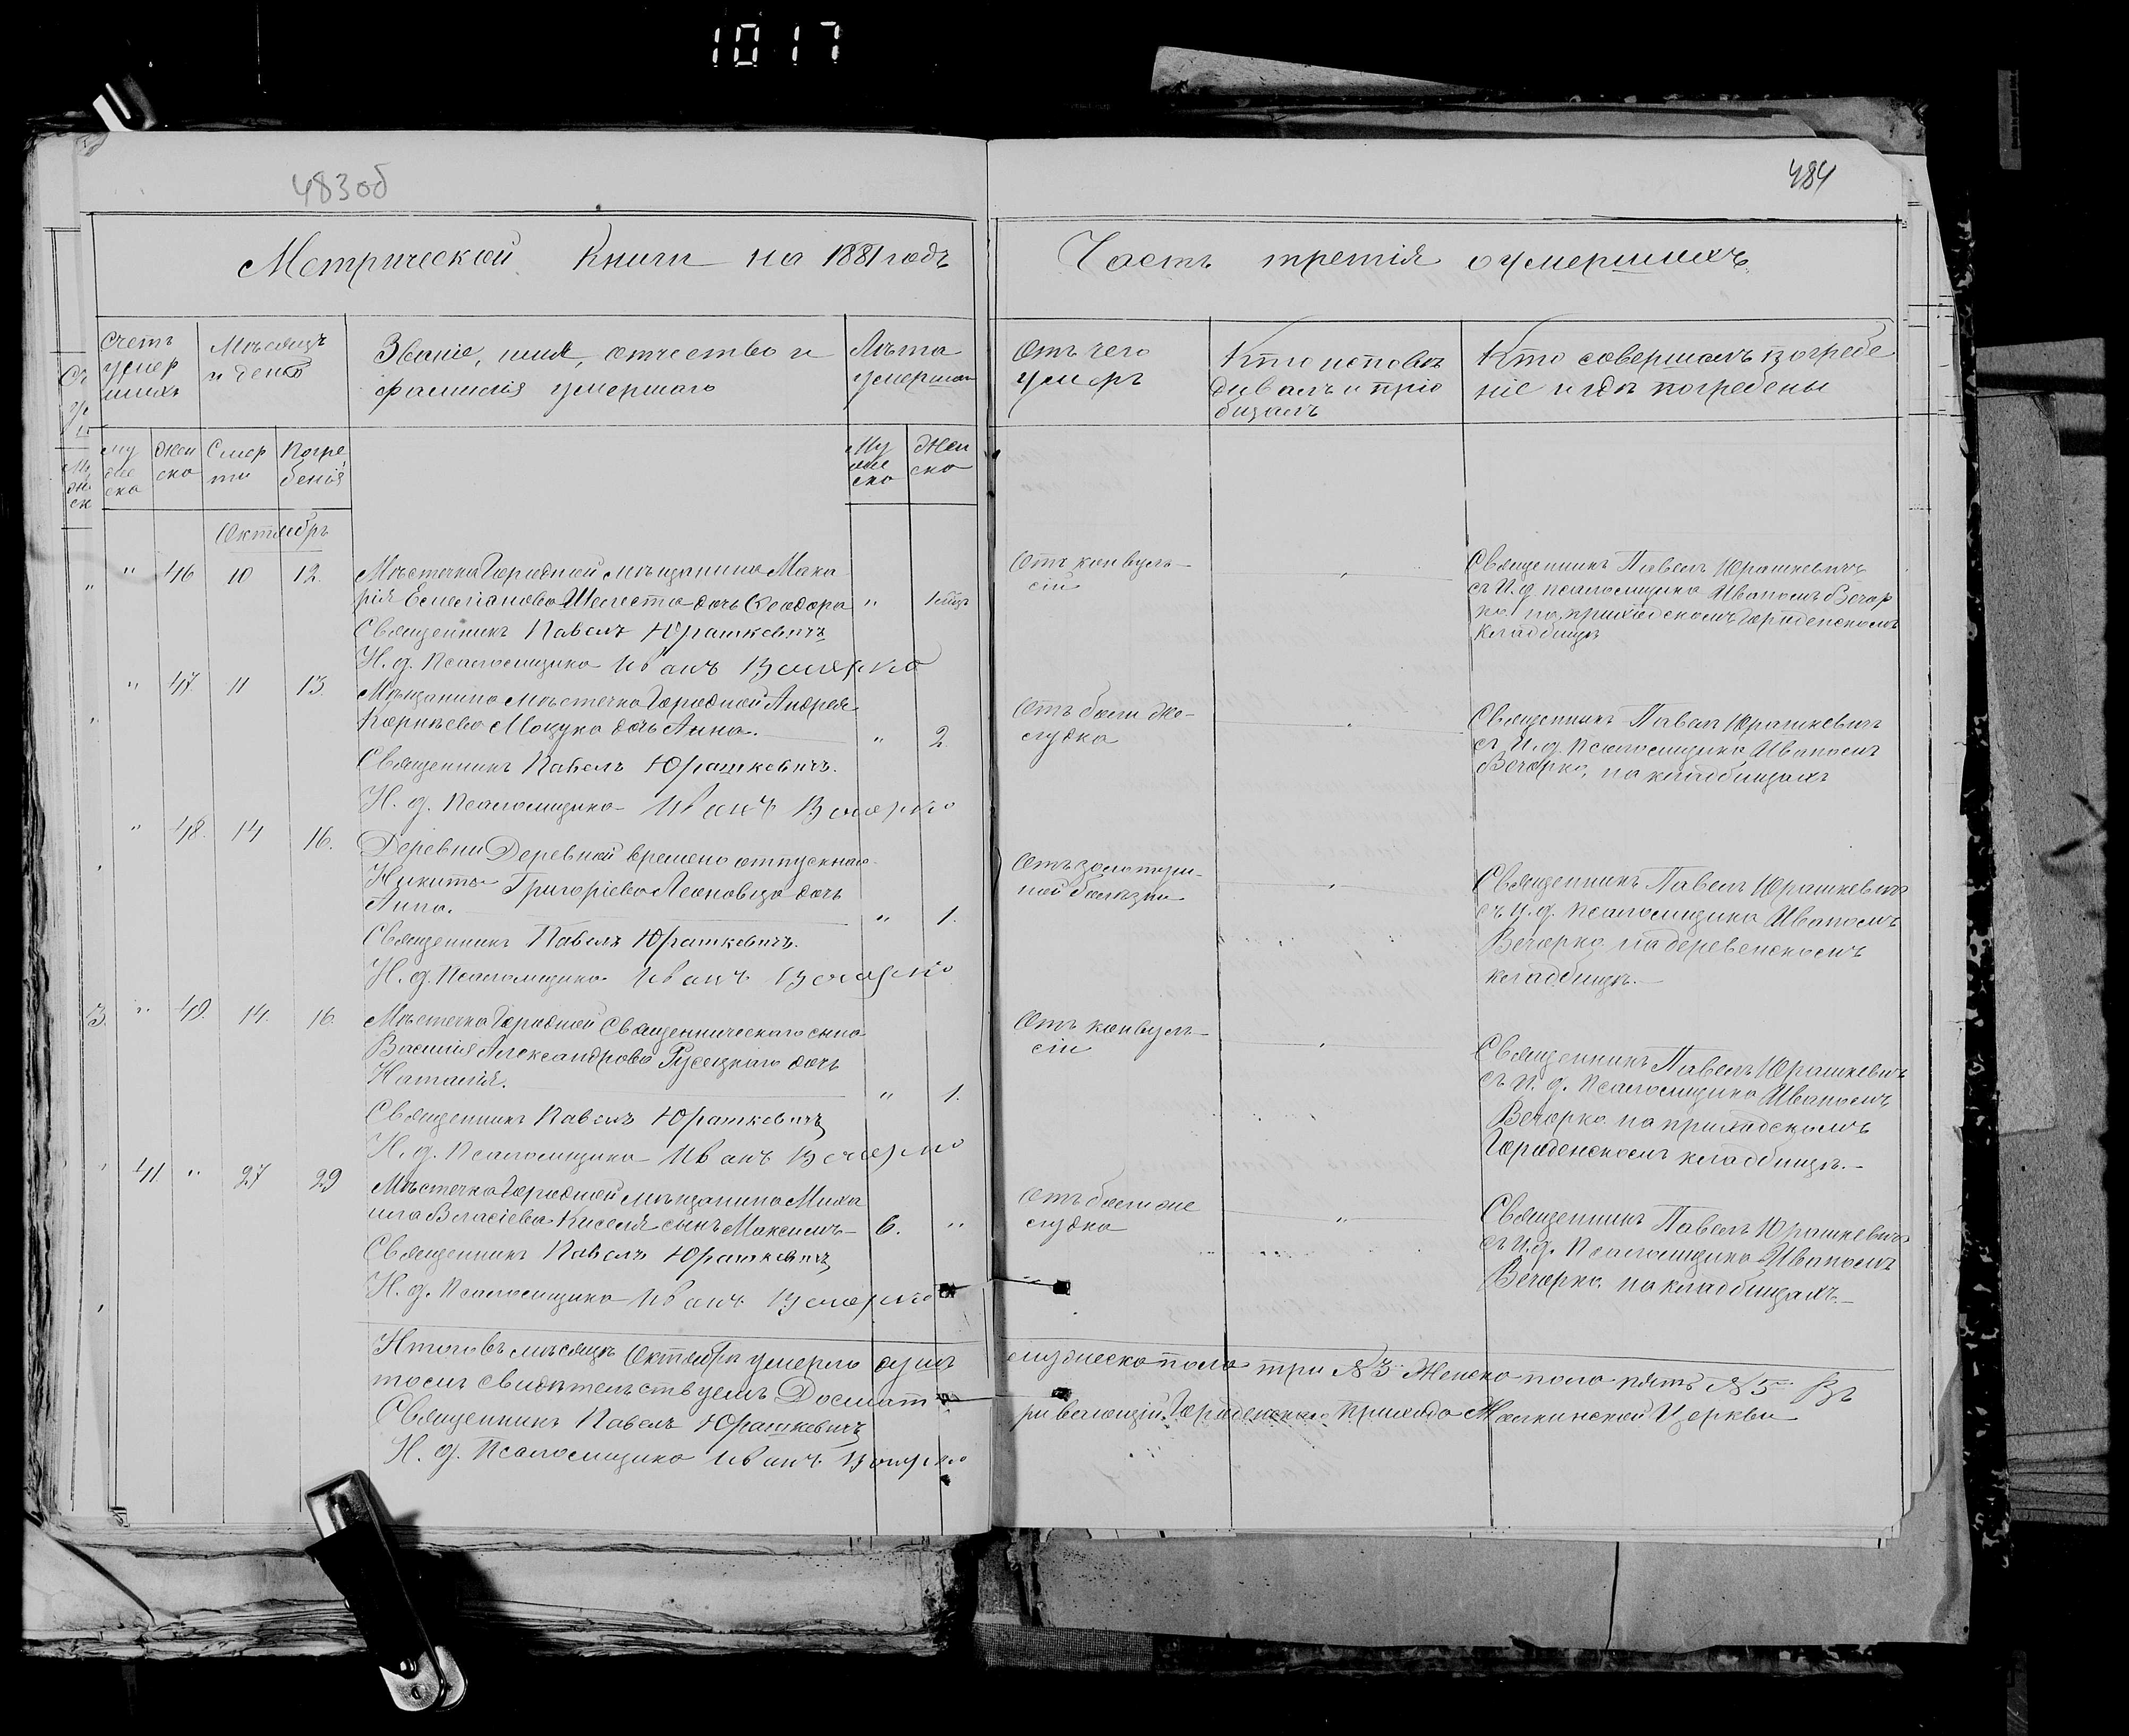 1017
483об
484
Метрической Книги на 1881 годъ
Часть третія о умершихъ
Счетъ умер шихъ
Мѣсяцъ и день
Званіе, имя, отчество и фамилія умершаго
Лѣта умершаго
Отъ чего умеръ
Кто исповѣ дывалъ и прiо бщалъ
Кто совершалъ погребе ніе и гдѣ погребены
Му жеска
Жен ско
Смер ти
Погре бенія
Му жес ко
Жен ско
Октябрь
" 46 10 12. Мѣстечка Городной мѣщанина Мака
рія Шелеста дочь Ѳеодора "
Священникъ Павелъ Юрашкевичъ
И. д. Псаломщика Иванъ Вечорко
Отъ конвуль-
сіи
Священникъ Павелъ Юрашкевичъ
съ И. д. псаломщика Иваномъ Вечор
ко на приходскомъ Городенскомъ
кладбищѣ
" 47. 11 13. Мѣщанина мѣстечка Городной Андрея
Корнѣева дочь Анна. " 2
Священникъ Павелъ Юрашкевичъ.
И. д. Псаломщика Иванъ Вечорко
Отъ боли же-
лудка
Священникъ Павелъ Юрашкевичъ
съ И. д. Псаломщика Иваномъ
Вечорко, на кладбищахъ
" 48. 14 16. Деревни Деревной временно отпускнаго
Никиты Григоріева Леоновца дочь
Анна. " 1.
Священникъ Павелъ Юрашкевичъ.
И. д. Псаломщика Иванъ Вечорко
Отъ золотуш-
ной болѣзни
Священникъ Павелъ Юрашкевичъ
съ И. д. Псаломщика Иваномъ
Вечорко на деревенскомъ
кладбищѣ.-
3. " 49. 14. 16. Мѣстечка Городной Священническаго сына
Василія Александрова Русецкаго дочь
Наталія. " 1.
Священникъ Павелъ Юрашкевичъ
И. д. Псаломщика Иванъ Вечорко
Отъ конвуль-
сіи
Священникъ Павелъ Юрашкевичъ
съ И. д. Псаломщика Иваномъ
Вечорко на приходскомъ
Городенскомъ кладбищѣ.-
41 " 27 29 Мѣстечка Городной мѣщанина Миха
ила Власіева Киселя сынъ Максимъ- 6. "
Священникъ Павелъ Юрашкевичъ
И. д. Псаломщика Иванъ Вечорко
Отъ боли же
лудка
Священникъ Павелъ Юрашкевичъ
съ И. д. Псаломщика Иваномъ
Вечорко на кладбищахъ.-
Итого въ мѣсяцѣ Октябрѣ умерло душъ мужеско пола три №3 Женско пола пять №5. Въ
томъ свидѣтельствуемъ Досмат ривающій Городенскаго прихода Церкви
Священникъ Павелъ Юрашкевичъ
И. д. Псаломщика Иванъ Вечорко